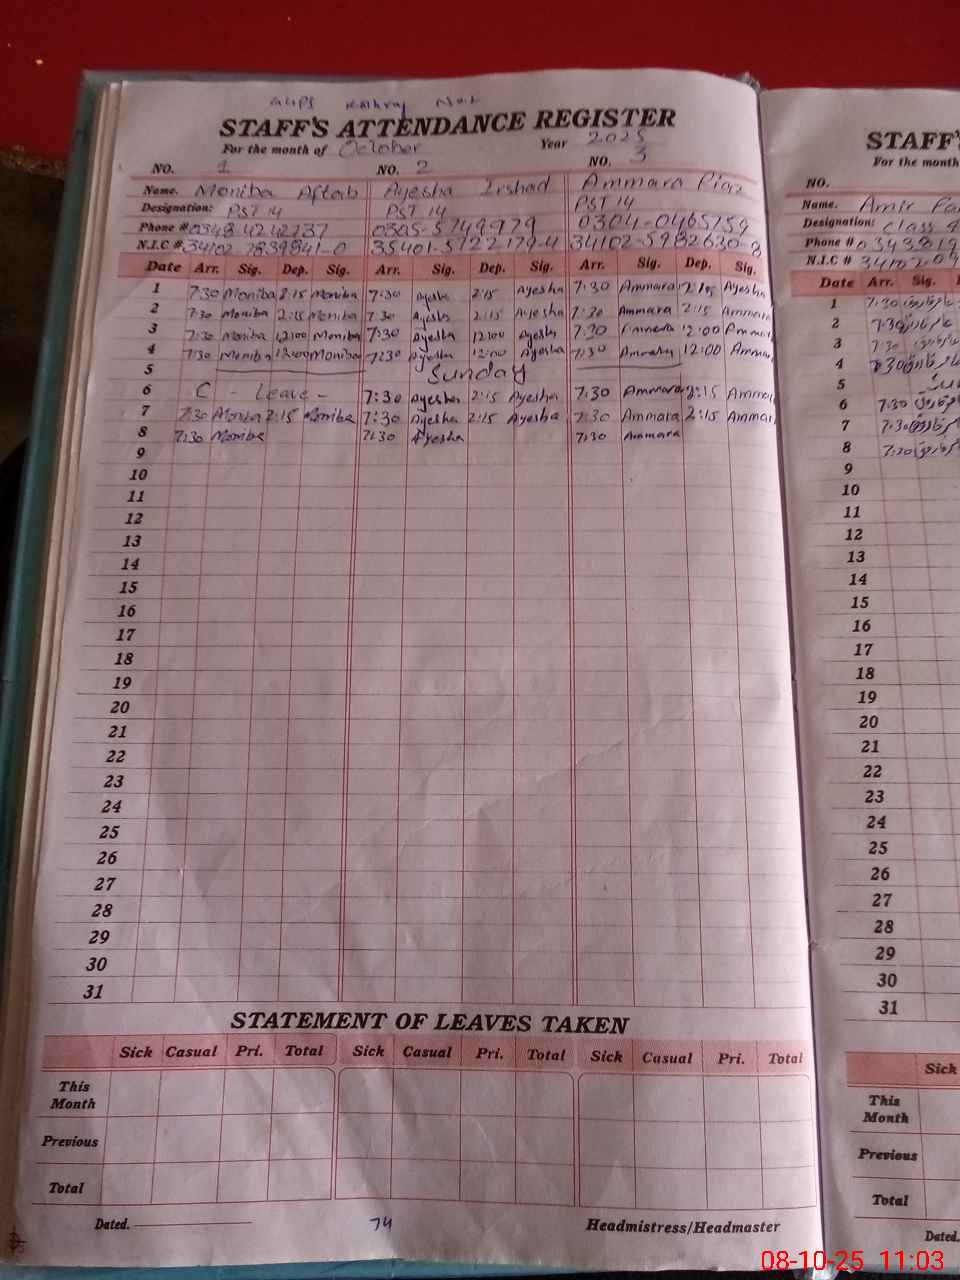 GGPS Kathray No.1
STAFF'S ATTENDANCE REGISTER
For the month of October Year 2025
NO. 1 NO. 2 NO. 3
Name. Moniba Aftab Ayesha Irshad Ammara Riaz
Designation: PST 14 PST 14 PST 14
Phone # 0348 4242737 0305-5749979 0304-0465759
N.I.C # 34102 7839841-0 35401-5722179-4 34102-5982630-8
Date Arr. Sig. Dep. Sig. Arr. Sig. Dep. Sig. Arr. Sig. Dep. Sig.
1 7:30 Moniba 2:15 Moniba 7:30 Ayesha 2:15 Ayesha 7:30 Ammara 2:15 Ayesha
2 7:30 Moniba 2:15 Moniba 7:30 Ayesha 2:15 Ayesha 7:30 Ammara 2:15 Ammara
3 7:30 Moniba 12:00 Moniba 7:30 Ayesha 12:00 Ayesha 7:30 Ammara 12:00 Ammar
4 7:30 Moniba 12:00 Moniba 7:30 Ayesha 12:00 Ayesha 7:30 Ammara 12:00 Ammar
5 Sunday
6 C - Leave - 7:30 Ayesha 2:15 Ayesha 7:30 Ammara 2:15 Ammar
7 7:30 Moniba 2:15 Moniba 7:30 Ayesha 2:15 Ayesha 7:30 Ammara 2:15 Ammar
8 7:30 Moniba 7:30 Ayesha 7:30 Ammara
9
10
11
12
13
14
15
16
17
18
19
20
21
22
23
24
25
26
27
28
29
30
31
STATEMENT OF LEAVES TAKEN
Sick Casual Pri. Total Sick Casual Pri. Total Sick Casual Pri. Total
This Month
Previous
Total
Dated. 74 Headmistress/Headmaster
STAFF'
For the month
NO.
Name. Amir Fa
Designation: Class 4
Phone #
N.I.C #
Date Arr. Sig.
1 7:30
2 7:30
3 7:30
4 7:30
5
6 7:30
7 7:30
8 7:30
9
10
11
12
13
14
15
16
17
18
19
20
21
22
23
24
25
26
27
28
29
30
31
Sick
This Month
Previous
Total
Dated.
08-10-25 11:03